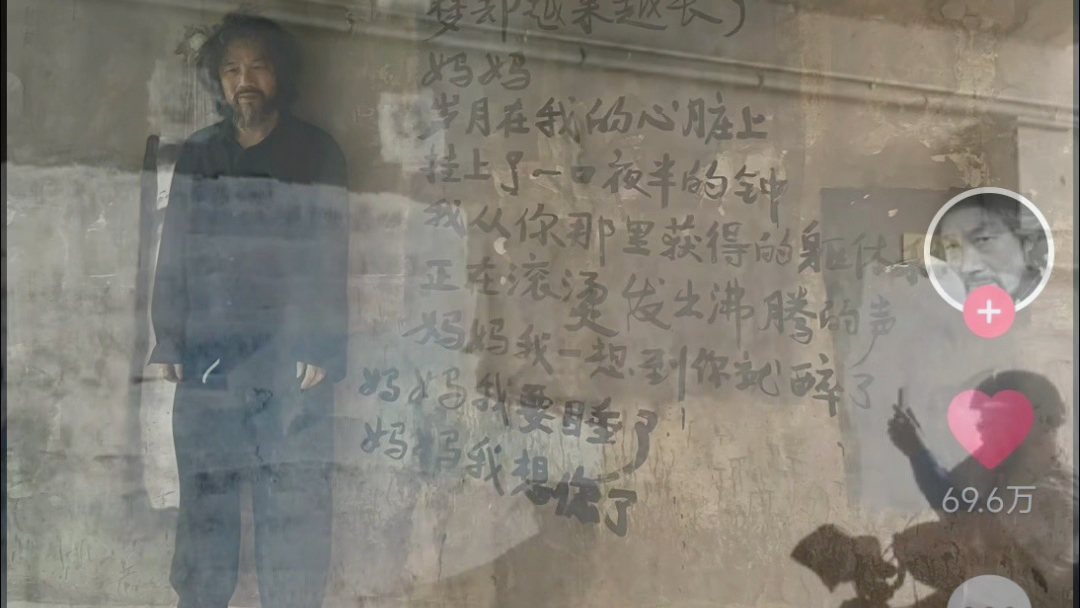 梦却越来越长）
妈妈
岁月在我的心脏上
挂上了一口夜半的钟
我从你那里获得的躯体
正在滚烫发出沸腾的声
妈妈我一想到你就醉了
妈妈我要睡了
妈妈我想你了
69.6万